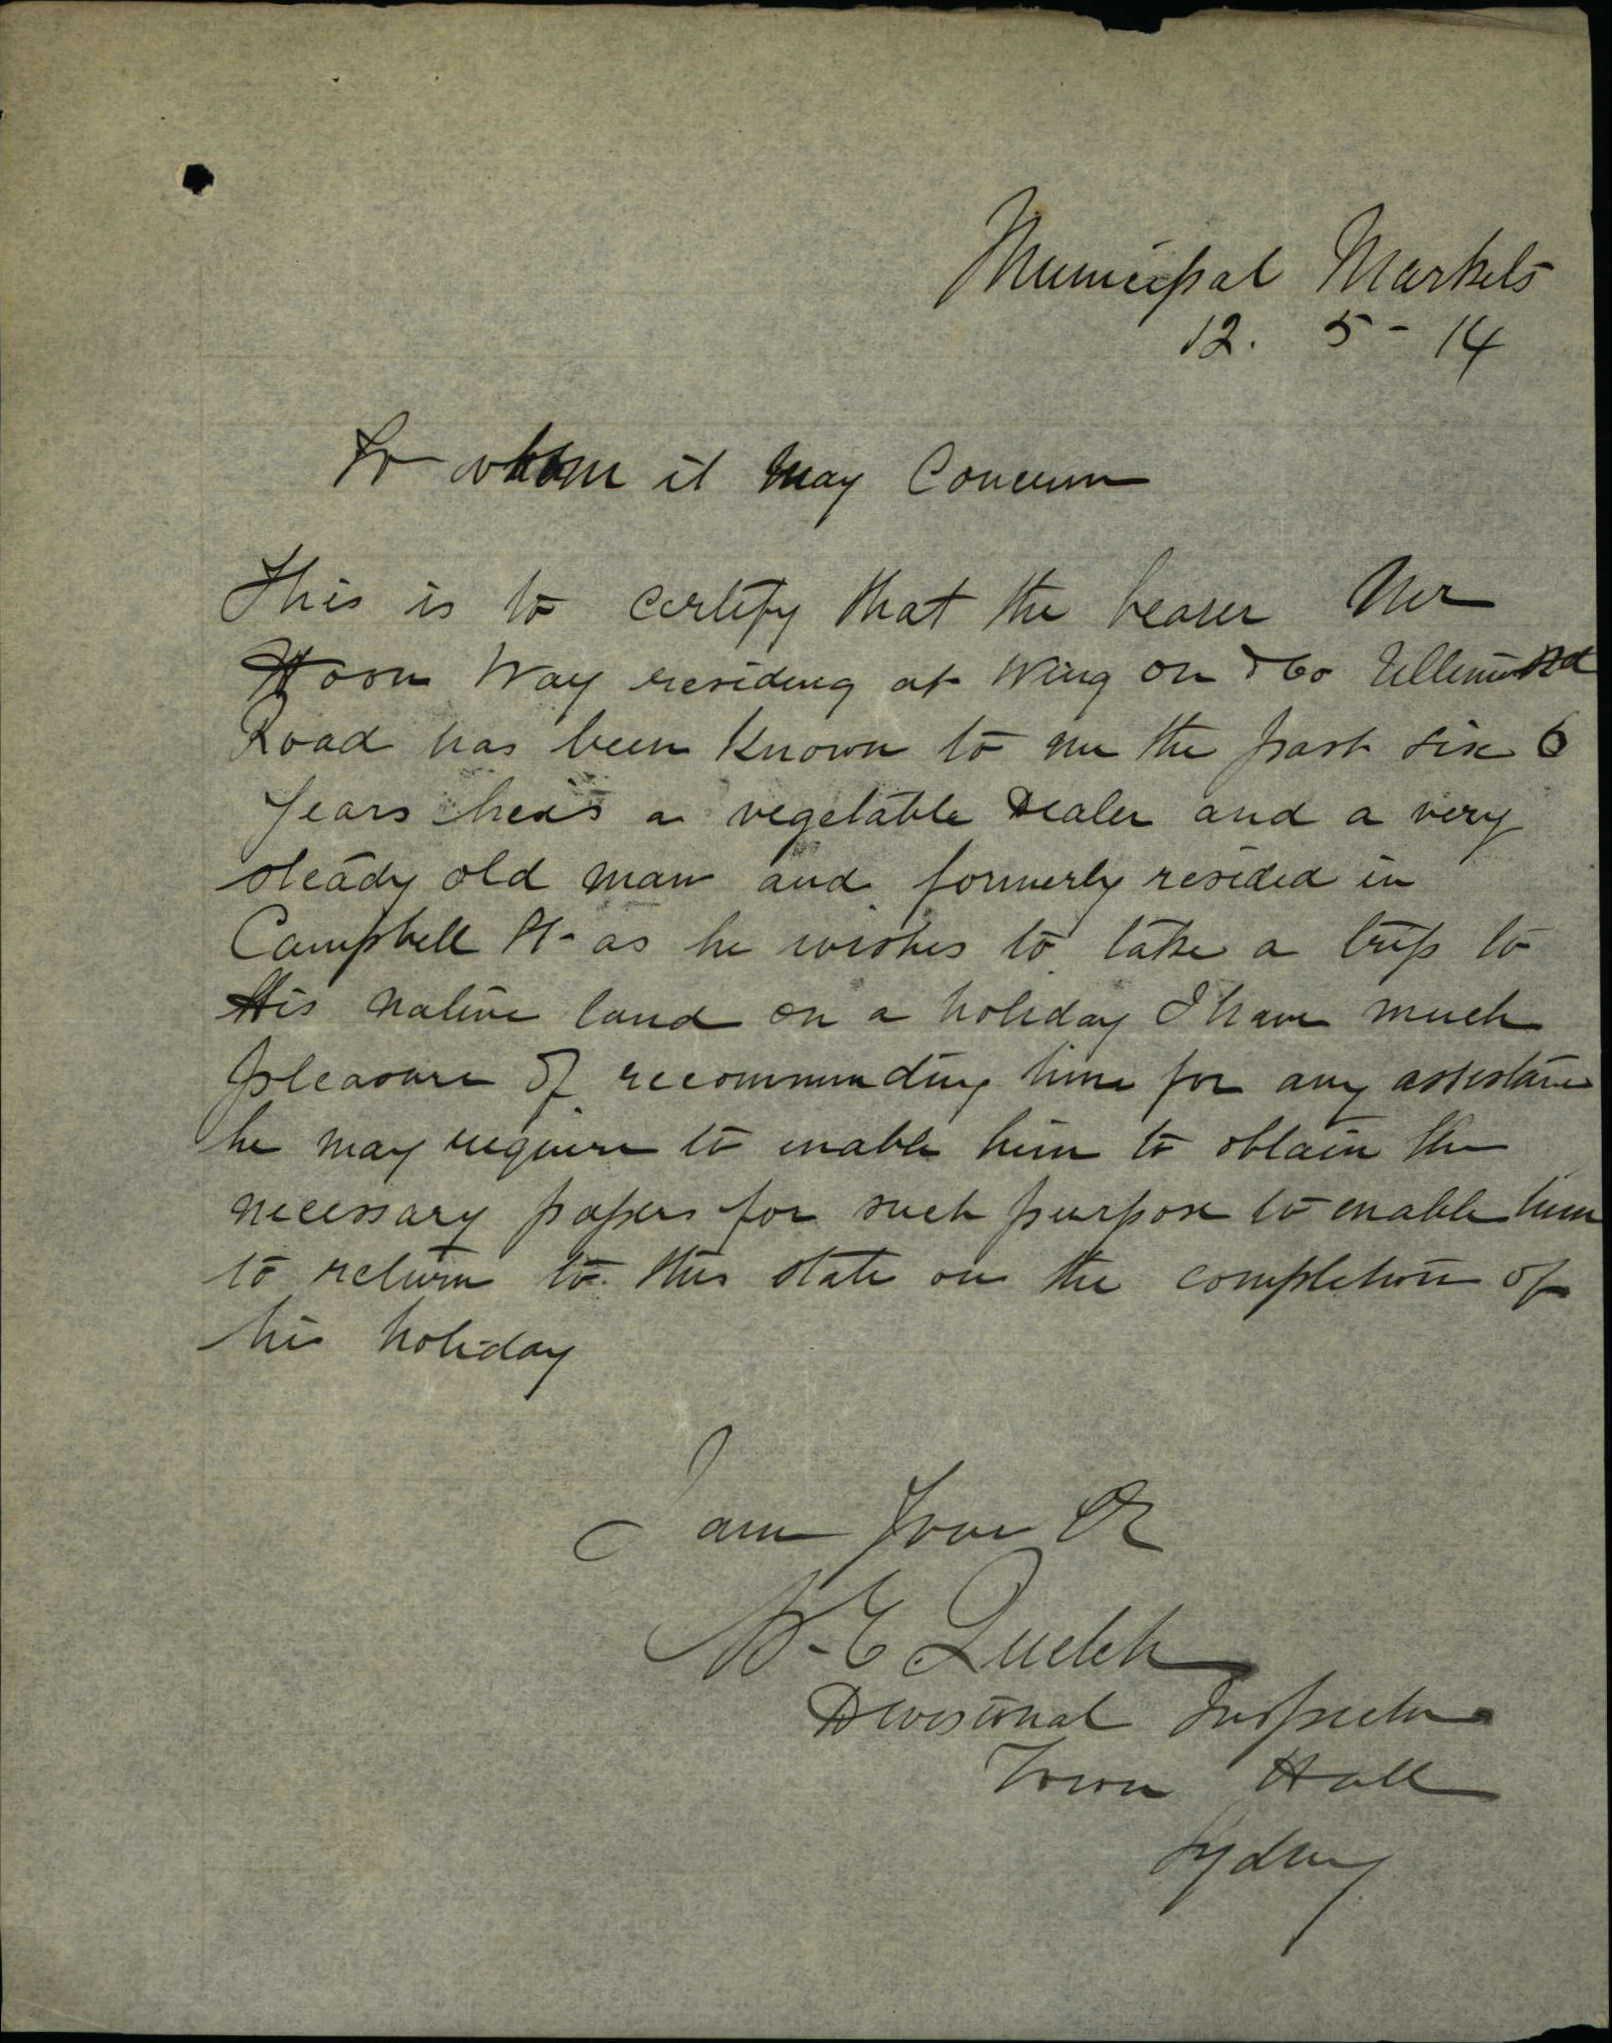 Municipal Markets
12. 5 - 14
To whom it may Concern
This is to certify that the bearer Mr
Hoon Way residing at Wing On & Co
Road has been known to me the past six 6
years he is a vegetable Dealer and a very
steady old man and formerly resided in
Campbell St - as he wishes to take a trip to
His native land on a holiday I have much
pleasure of recommending him for any assistance
he may require to enable him to obtain the
necessary papers for such purpose to enable him
to return to this state on the completion of
his holiday
I am Your
W. E Quelch
Divisional Inspector
Town Hall
Sydney